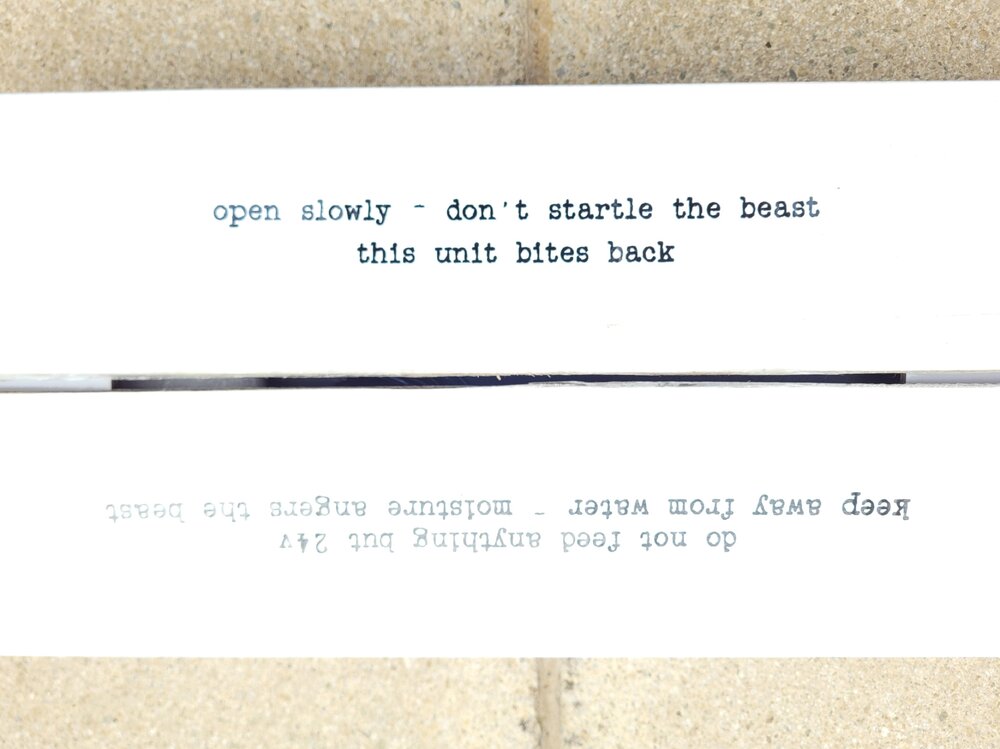 open slowly - don't startle the beast
this unit bites back
do not feed anything but 24v
keep away from water - moisture angers the beast